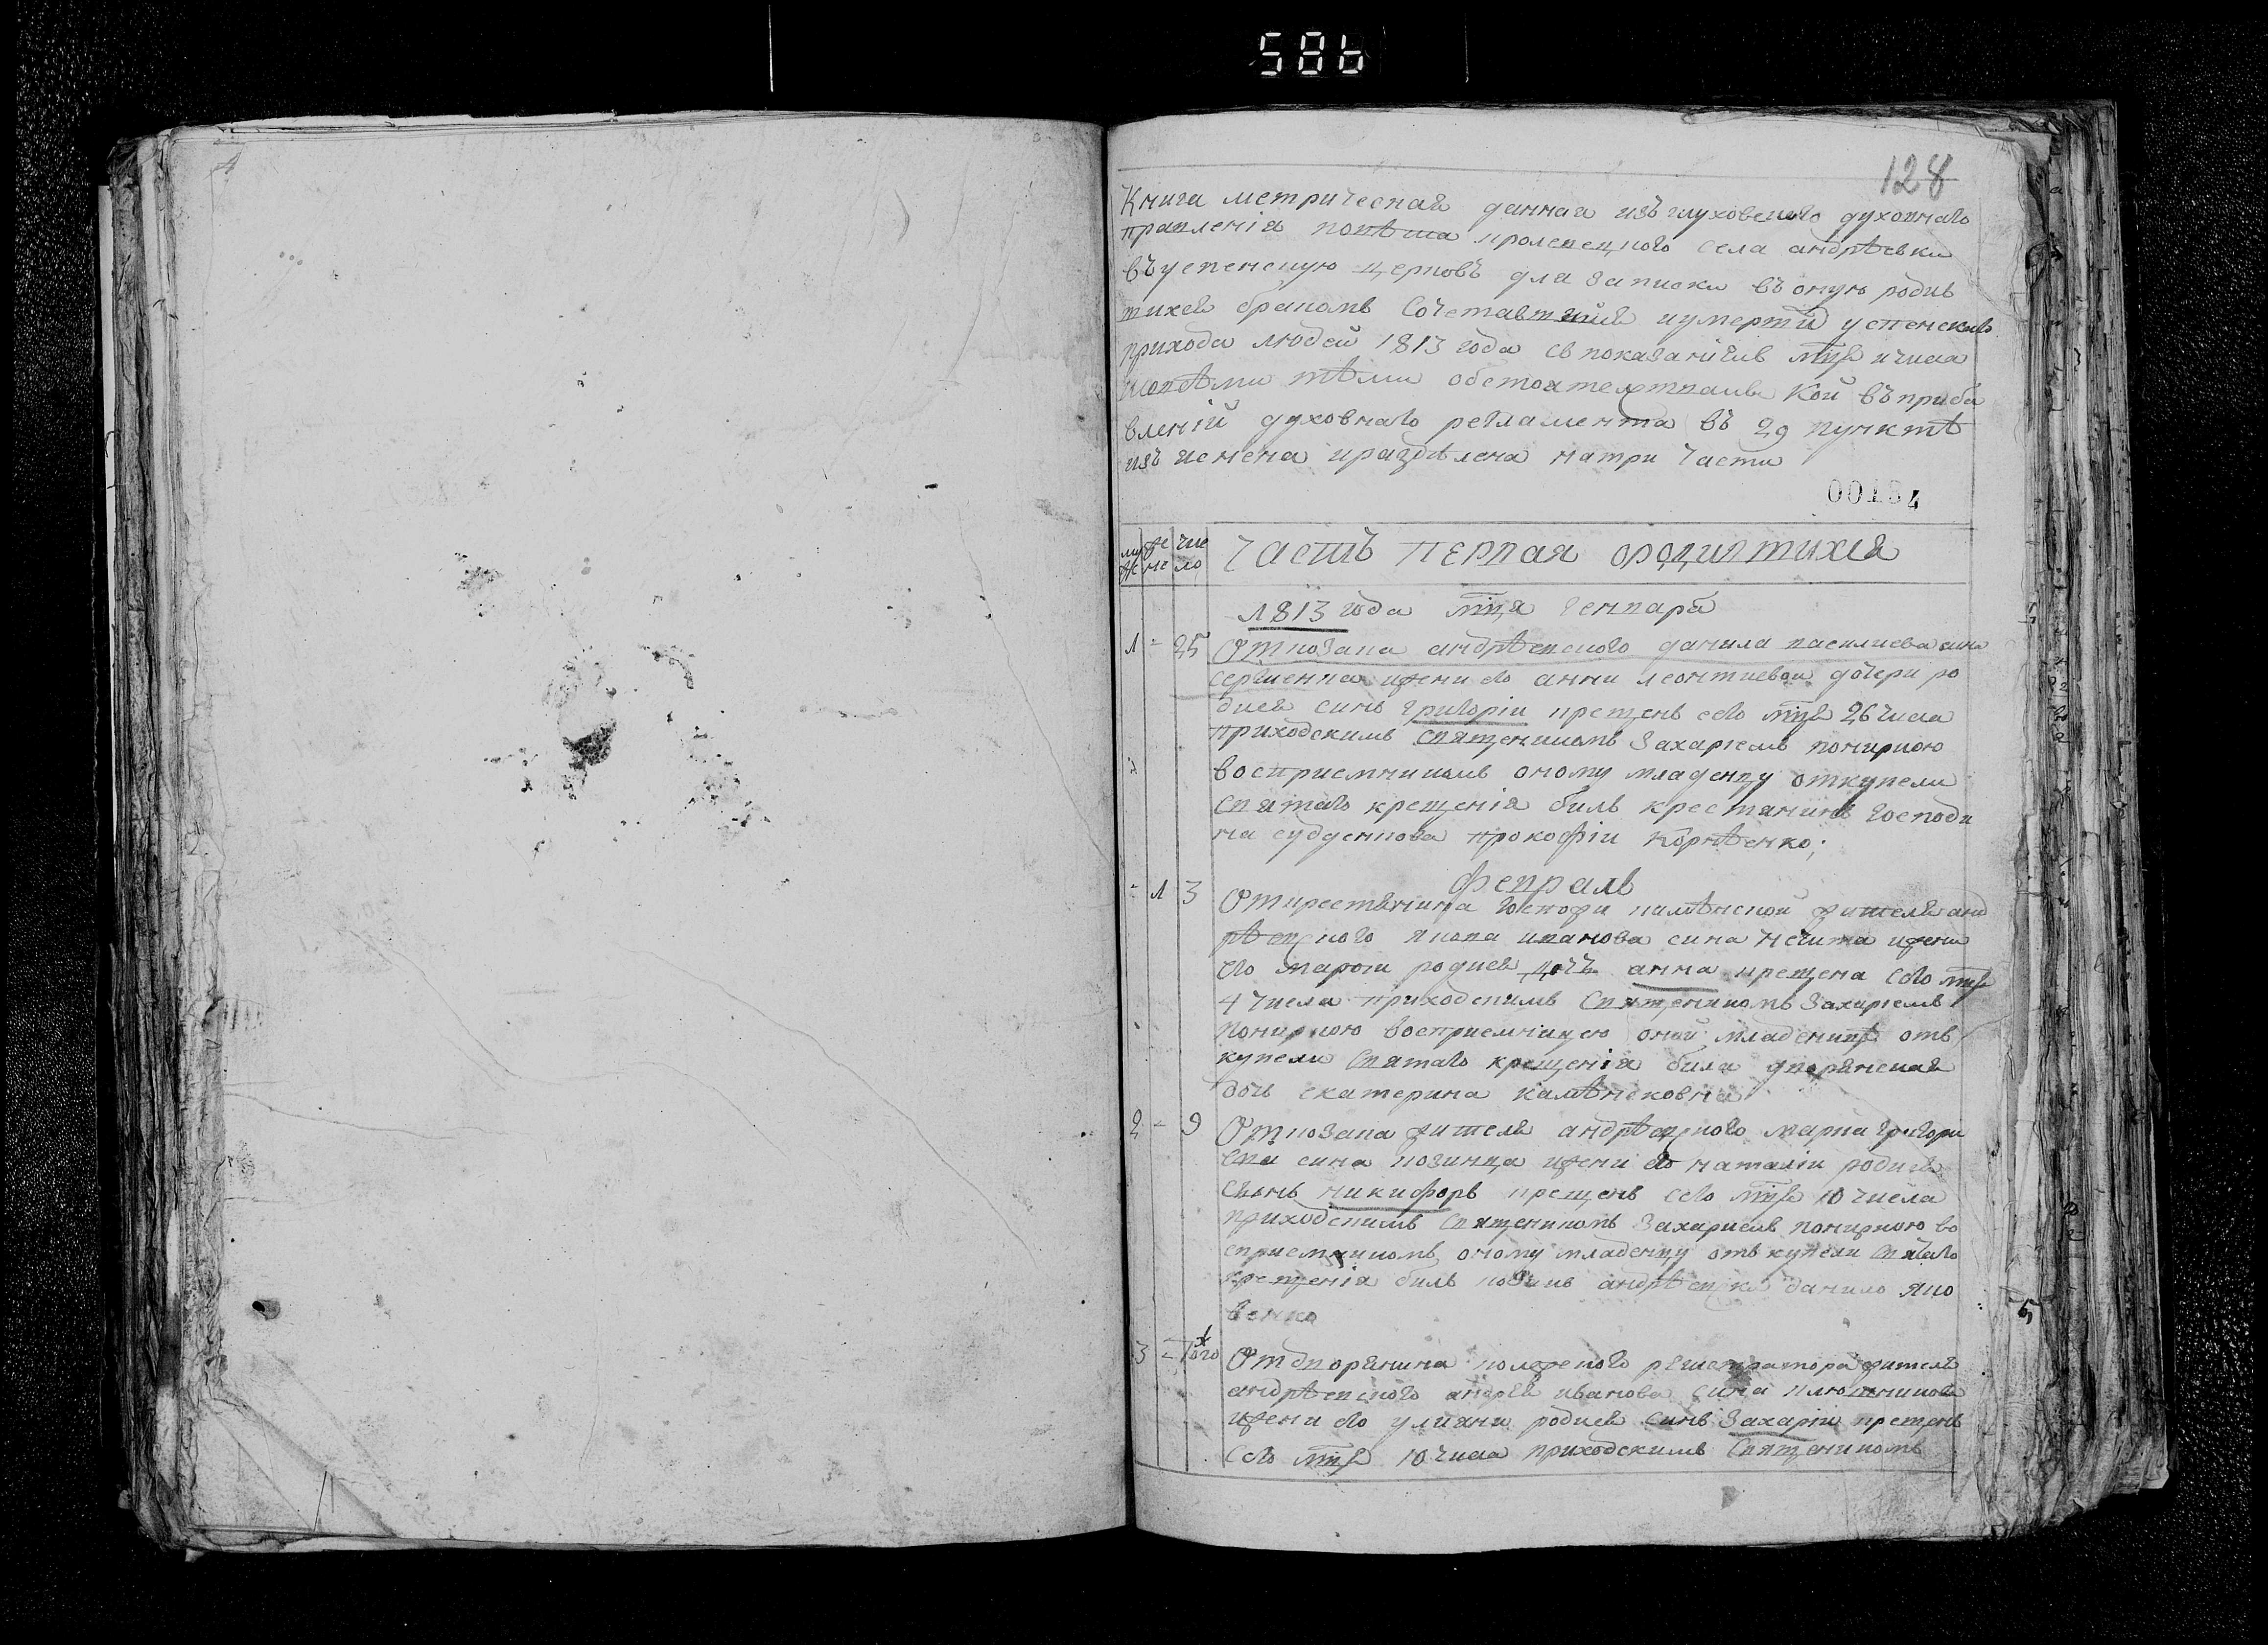 586
128
Книга метрическая данная изъ глуховского духовнаго
правленія повѣта кролевецкого села андрѣевки
въ успенскую церковъ для записки въ оную родив
шихся бракомъ сочетавшихся иумершихъ успенского
прихода людей 1813 года съ показаніемъ мца ичисла
исовсѣми тѣми обстоятелствами кои въ приба
вленіи духовнаго регламента въ 29 пунктѣ
изъ яснена ираздѣлена натри части
00184
му же чис
ж не ло
Часть первая ородившихся
1813 года мца генваря
1 = 25 Откозака андрѣевского данила василиева сина
Сергиенка ижени его анни леонтиевой дочери ро
дися синъ григоріи крещенъ сего мца 26 числа
приходскимъ священикомъ Захариемъ
восприемникомъ оному младенцу откупели
святаго крещенія билъ крестянинъ господи
на судденкова прокофіи корнѣенко;
февраль
= 1 3 Открестянина госпожи камѣнской жителя анд
рѣевского якова иванова сина ижени
его марфи родися дочъ анна крещена сего мца
4 числа приходскимъ священикомъ Захариемъ
восприемницею оной младеницѣ отъ
купели святаго крещенія била дворянская
дочь екатерина камѣнсковна
2 = 9 Откозака жителя андрѣевского марка григори
ева сина козинца ижени его наталіи родися
синъ никифоръ крещенъ сего мца 10 числа
приходскимъ священикомъ Захариемъ во
сприемникомъ оному младенцу отъ купели святаго
крещенія билъ козакъ андрѣевски данило яко
венко
3 = Того Отдворянина колежского регистратора жителя
андрѣевского андрея иванова сина
ижени его улияни родися синъ Захаріи крещенъ
сего мца 10 числа приходскимъ священикомъ